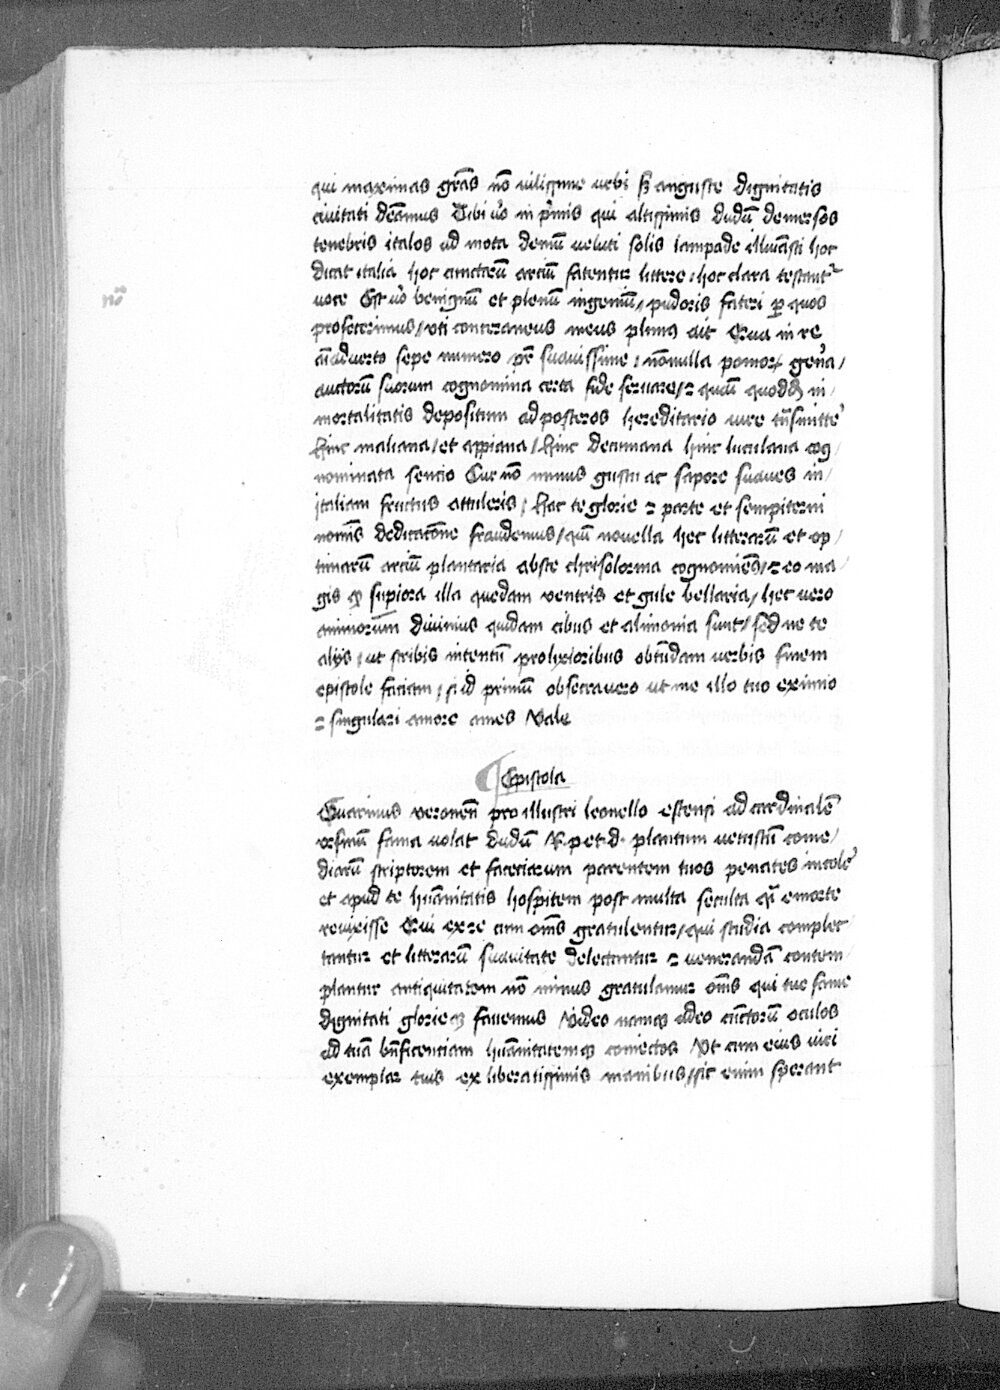 qui maximas grās nō vilissime urbi sʒ anguste dignitatis
civitati dēamus Tibi ṽo in p̄mis qui altissimis dudū demersos
tenebris italos ad mota demū veluti solis lampade illuīasti hoc
dicat italia hoc cunctarū arciū fatentur littere / hoc clara testant᷑
nō
voce Est ṽo benignū et plenū ingeniū / pudoris fateri p̲ quos
profecerimus / uti conteraneus meus plinius ait Qua in re
aīadverto sepe numero pr̄ suavissime / nōnulla pomoꝝ gen̄a /
auctorū suorum cognomina certa fide servare / ⁊ quasi quoddā in /
mortalitatis depositum ad posteros hereditario iure trāsmitte᷑
hinc maliana / et appiana / hinc decumana hinc luculana cog /
nominata sentio Cur nō minus gustu ac sapore suaves in /
italiam fructus attuleris / hac te glorie ⁊ parte et sempiterni
nomīs dedicatōne fraudemus / quī novella hec litterarū et op /
timarum arciū plantaria abste chrisolorina cognomīent᷑ / ⁊ eo ma /
gis qꝫ supiora illa quedam ventris et gule bellaria / hec vero
animorum divinius quidam cibus et alimonia sunt / sed ne te
alijs / ut scribis intentū prolixioribus obtūdam verbis finem
epistole faciam / si id primū obsecravero ut me illo tuo eximio
⁊ singulari amore ames Vale
¶ Epistola
Guarinus veronen̄ pro illustri leonello estensi ad cardinalē
ursinū fama volat dudū R. p et d. plautum vetustū come /
diarū scriptorem et faceciarum parentem tuos penates incole᷑
et apud te huānitatis hospitem post multa secula qͣi emorte
revixisse Qui ex re cum omīs gratulentur / qui studia complec
tantur et litterarū suavitate delectantur ⁊ venerandā contem /
plantur antiquitatem nō minus gratulamur omīs qui tue fame
dignitati glorieqꝫ favemus Video namqꝫ adeo cūctorū oculos
ad tuā bn̄ficentiam huānitatemqꝫ coniectos Ut cum eius viri
exemplar tuis ex liberatissimis manibus / sic enim sperant